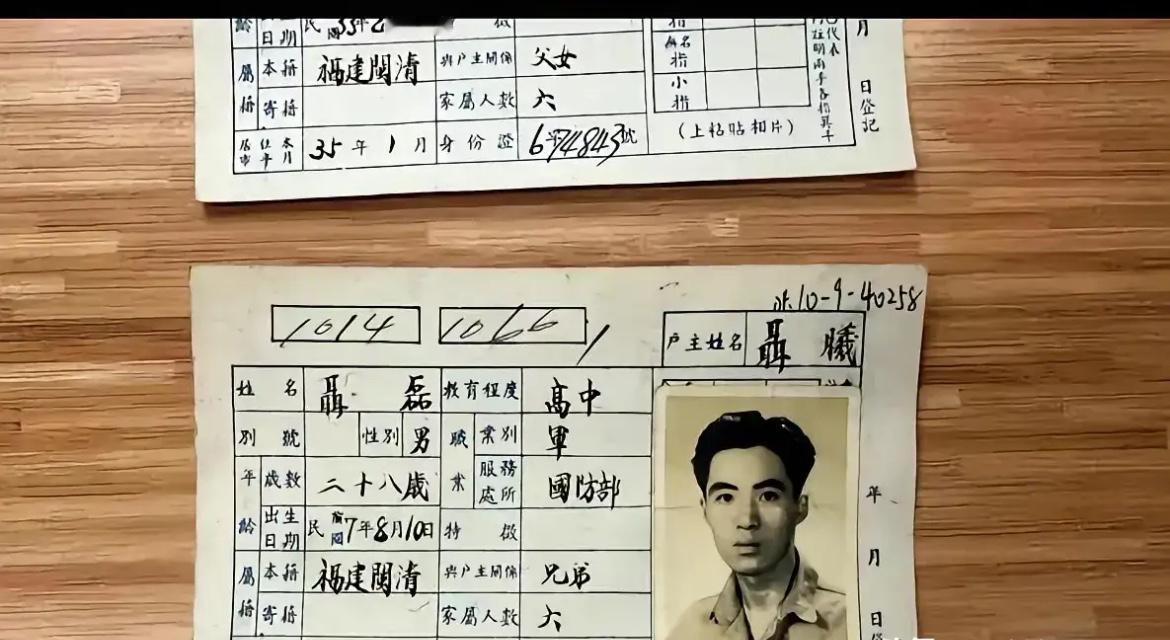 日期 民國33年
本籍 福建閩清 與戶主關係 父女 無名指
寄籍 家屬人數 六 小指
35年1月 身份證 （上粘貼相片）
月
日登記
永10-9-40258
1014 1066
戶主姓名 聶曦
姓名 聶磊 教育程度 高中
別號 性別 男 職業 業別 軍
年齡 歲數 二十八歲 服務處所 國防部
出生日期 民國7年8月10日 特徵
屬籍 本籍 福建閩清 與戶主關係 兄弟
寄籍 家屬人數 六
年
月
日